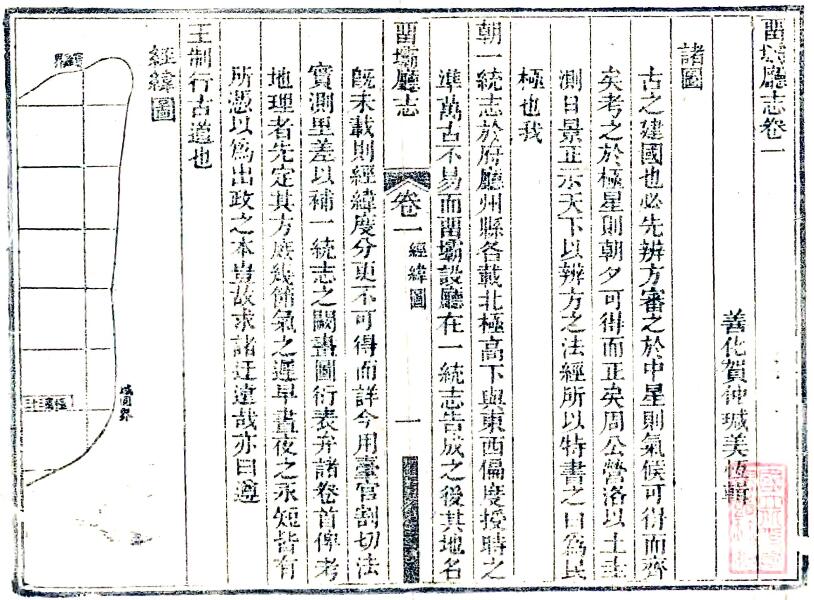 畱壩廳志卷一
善化賀仲瑊美恆輯
諸圖
古之建國也必先辨方審之於中星則氣候可得而齊
矣考之於極星則朝夕可得而正矣周公營洛以土圭
測日景正示天下以辨方之法經所以特書之曰爲民
極也我
朝一統志於府廳州縣各載北極高下與東西偏度授時之
準萬古不易而畱壩設廳在一統志告成之後其地名
畱壩廳志
卷一
經緯圖
一
旣未載則經緯度分更不可得而詳今用臺官割切法
實測里差以補一統志之闕畫圖衍表弁諸卷首俾考
地理者先定其方庶幾節氣之遲早晝夜之永短皆有
所憑以爲出政之本豈故求諸迂遠哉亦曰遵
王制行古道也
經緯圖